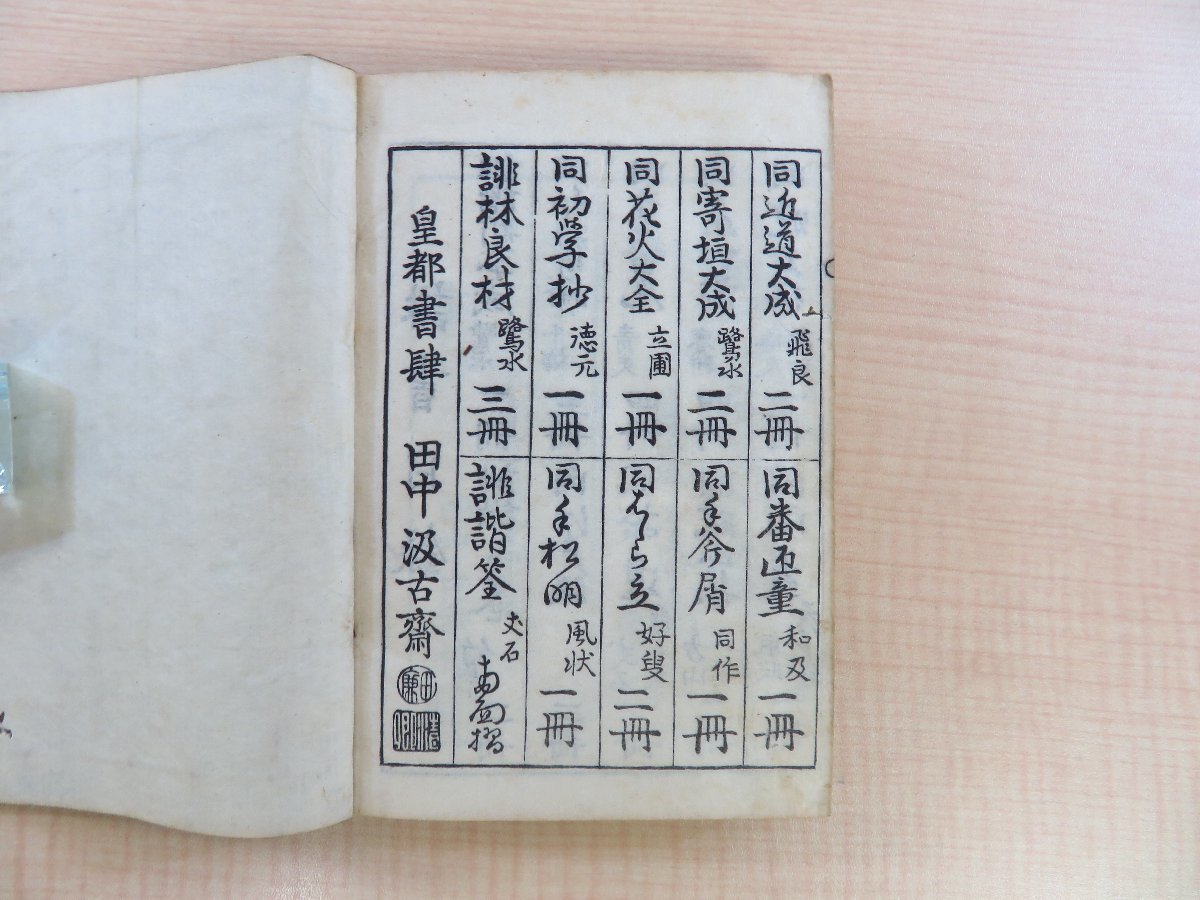 同近道大成 飛良 二冊
同番匠童 和及 一冊
同寄垣大成 鷺水 二冊
同手斧屑 同作 一冊
同花火大全 立圃 一冊
同はしら立 好叟 二冊
同初学抄 徳元 一冊
同手松明 風状 一冊
誹林良材 鷺水 三冊
誹諧筌 丈石 両面摺
皇都書肆 田中汲古齋